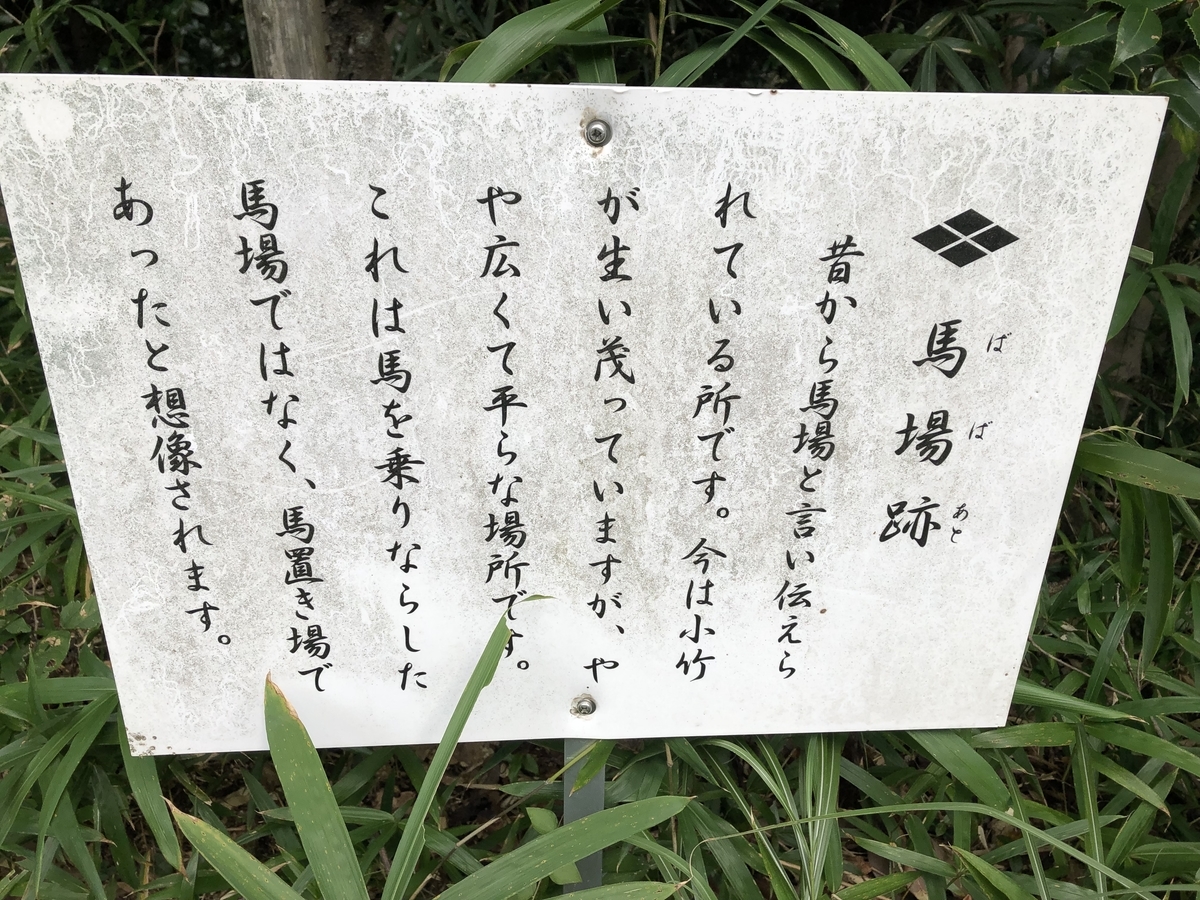 馬場跡
ばばあと
昔から馬場と言い伝えら
れている所です。今は小竹
が生い茂っていますが、や
や広くて平らな場所です。
これは馬を乗りならした
馬場ではなく、馬置き場で
あったと想像されます。